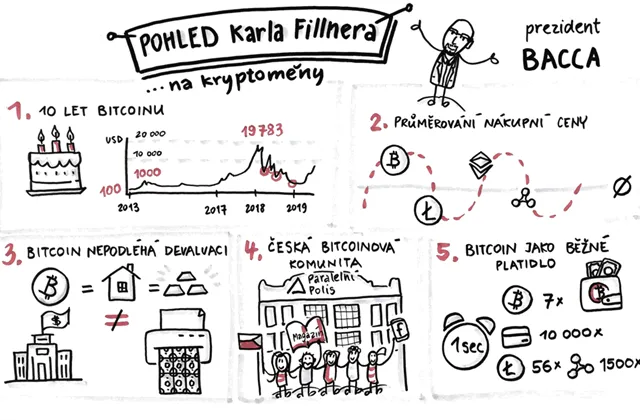 POHLED Karla Fillnera
...na kryptoměny
prezident
BACCA
1. 10 LET BITCOINU
USD
20 000
10 000
1000
100
19783
2013
2017
2018
2019
2. PRŮMĚROVÁNÍ NÁKUPNÍ CENY
3. BITCOIN NEPODLÉHÁ DEVALVACI
=
=
≠
$
4. ČESKÁ BITCOINOVÁ
KOMUNITA
Paralelní
Polis
Magazín
5. BITCOIN JAKO BĚŽNÉ
PLATIDLO
1sec
7x
10 000x
56x
1500x